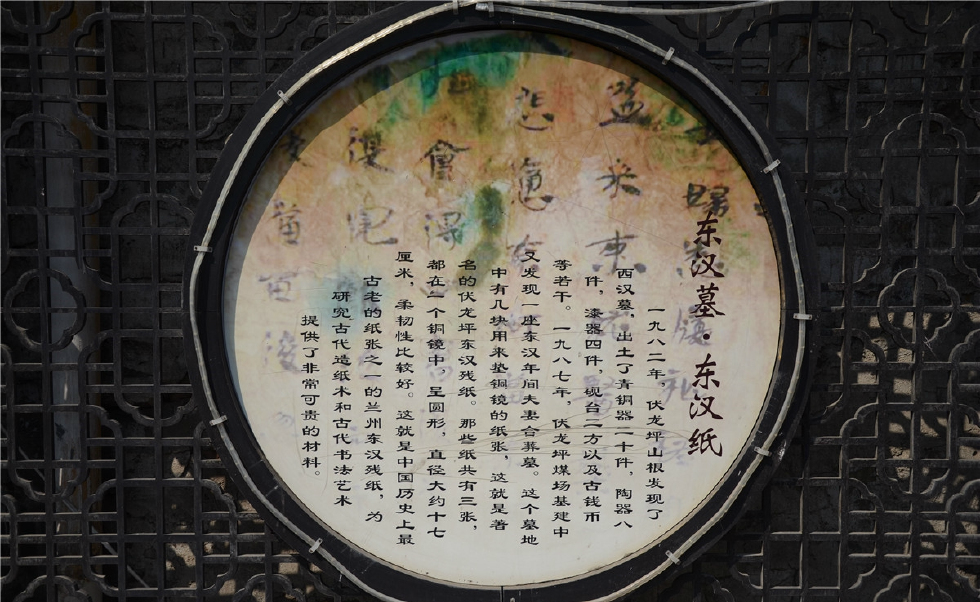 东汉墓·东汉纸
一九八二年，伏龙坪山根发现了
西汉墓，出土了青铜器二十件，陶器八
件，漆器四件，砚台二方以及古钱币
等若干。一九八七年，伏龙坪煤场基建中
又发现一座东汉年间夫妻合葬墓。这个墓地
中有几块用来垫铜镜的纸张，这就是著
名的伏龙坪东汉残纸。那些纸共有三张，
都在一个铜镜中，呈圆形，直径大约十七
厘米，柔韧性比较好。这就是中国历史上最
古老的纸张之一的兰州东汉残纸，为
研究古代造纸术和古代书法艺术
提供了非常可贵的材料。